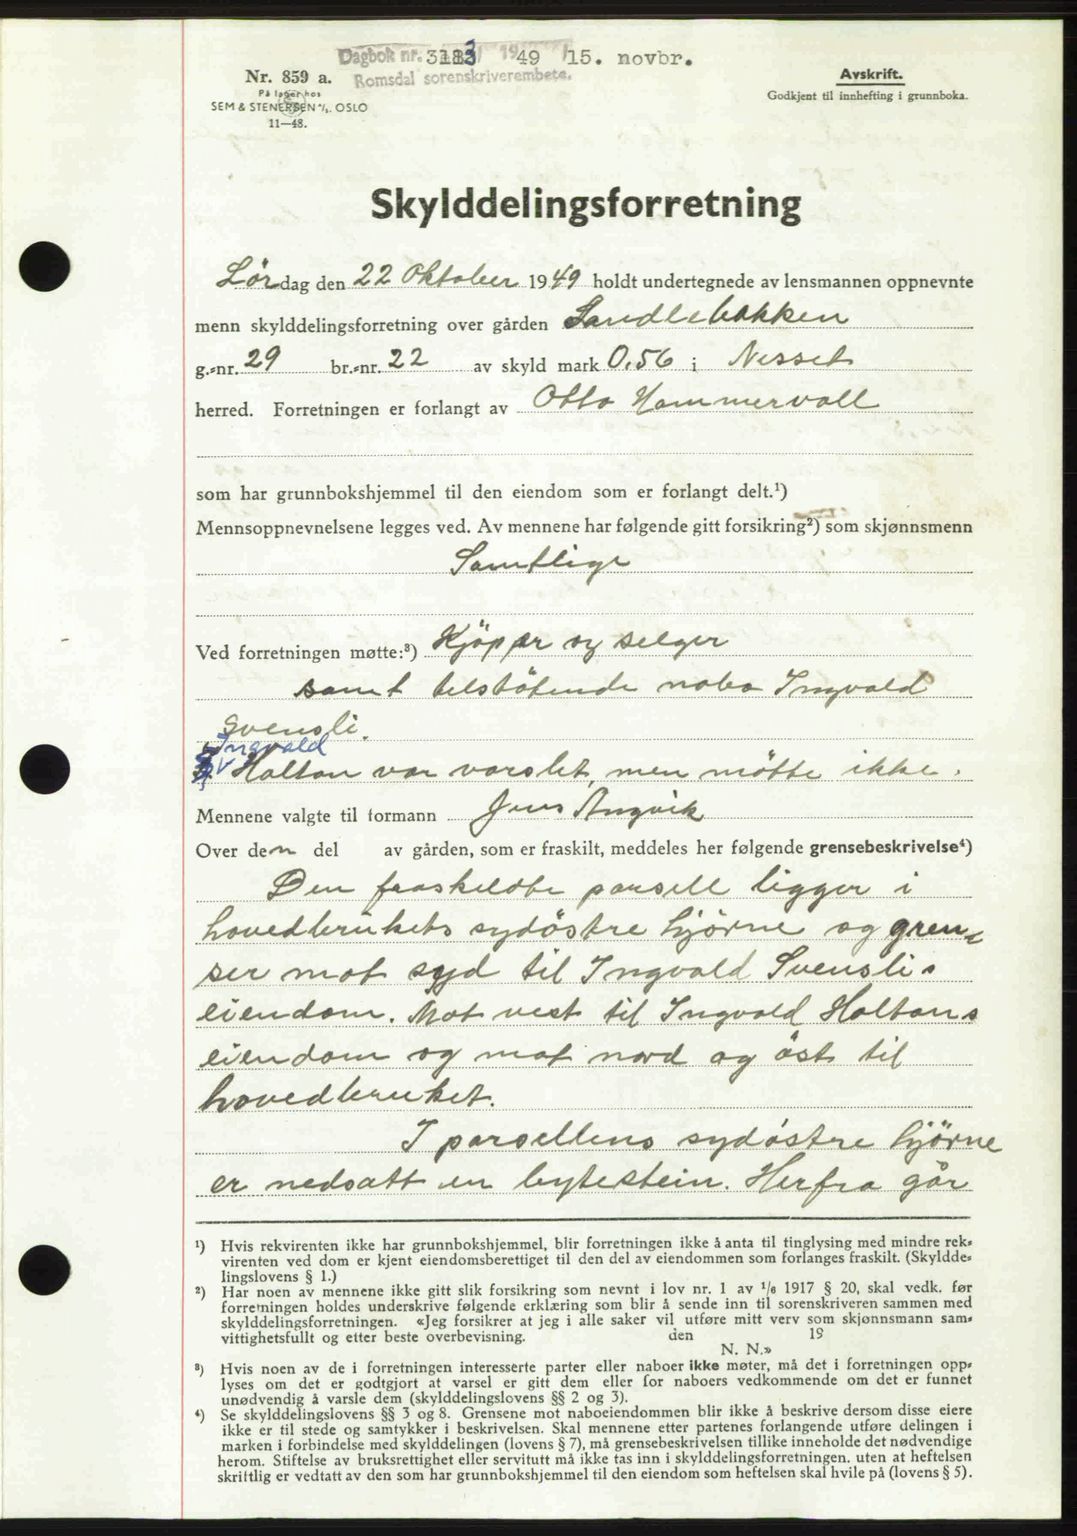 Dagbok nr. 3183 1949 15. novbr.
Romsdal sorenskriverembete.
Nr. 859 a.
På lager hos
SEM & STENERSEN A/S. OSLO
11—48.
Avskrift.
Godkjent til innhefting i grunnboka.
Skylddelingsforretning
Lördag den 22 Oktober 1949 holdt undertegnede av lensmannen oppnevnte
menn skylddelingsforretning over gården Sandlebakken
g.-nr. 29 br.-nr. 22 av skyld mark 0.56 i Nesset
herred. Forretningen er forlangt av Otto Hammervoll
som har grunnbokshjemmel til den eiendom som er forlangt delt.¹)
Mennsoppnevnelsene legges ved. Av mennene har følgende gitt forsikring²) som skjønnsmenn
Samtlige
Ved forretningen møtte:³) Kjöper og selger
samt tilstötende nabo Ingvald
Svensli.
Ingvald
Holtan var varslet, men mötte ikke.
Mennene valgte til formann Jens Angvik
Over den del av gården, som er fraskilt, meddeles her følgende grensebeskrivelse⁴)
Den fraskildte parsell ligger i
hovedbrukets sydöstre hjörne og gren-
ser mot syd til Ingvald Svenslis
eiendom. Mot vest til Ingvald Holtans
eiendom og mot nord og öst til
hovedbruket.
I parsellens sydöstre hjörne
er nedsatt en bytestein. Herfra går
¹) Hvis rekvirenten ikke har grunnbokshjemmel, blir forretningen ikke å anta til tinglysing med mindre rek-
virenten ved dom er kjent eiendomsberettiget til den del av eiendommen som forlanges fraskilt. (Skyldde-
lingslovens § 1.)
²) Har noen av mennene ikke gitt slik forsikring som nevnt i lov nr. 1 av 1/6 1917 § 20, skal vedk. før
forretningen holdes underskrive følgende erklæring som blir å sende inn til sorenskriveren sammen med
skylddelingsforretningen. «Jeg forsikrer at jeg i alle saker vil utføre mitt verv som skjønnsmann sam-
vittighetsfullt og etter beste overbevisning. den 19
N. N.»
³) Hvis noen av de i forretningen interesserte parter eller naboer ikke møter, må det i forretningen opp-
lyses om det er godtgjort at varsel er gitt dem eller for naboers vedkommende om det er funnet
unødvendig å varsle dem (skylddelingslovens §§ 2 og 3).
⁴) Se skylddelingslovens §§ 3 og 8. Grensene mot naboeiendommen blir ikke å beskrive dersom disse eiere
ikke er til stede og samtykker i beskrivelsen. Skal mennene etter partenes forlangende utføre delingen i
marken i forbindelse med skylddelingen (lovens § 7), må grensebeskrivelsen tillike inneholde det nødvendige
herom. Stiftelse av bruksrettighet eller servitutt må ikke tas inn i skylddelingsforretningen, uten at heftelsen
skriftlig er vedtatt av den som har grunnbokshjemmel til den eiendom som heftelsen skal hvile på (lovens § 5).